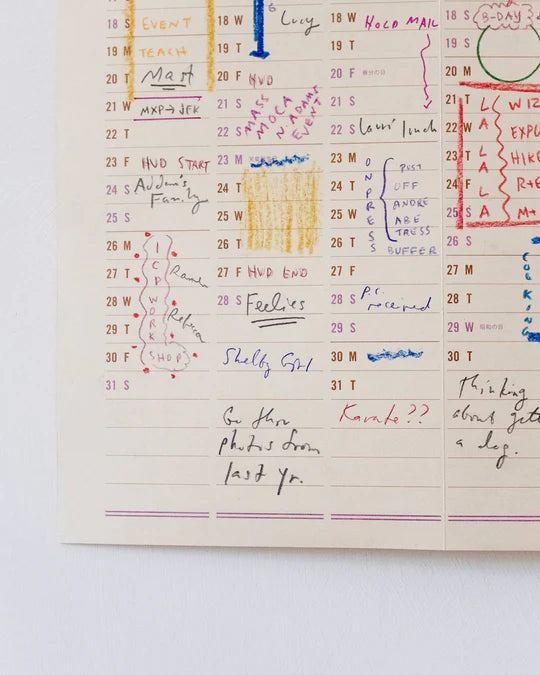 18 S EVENT
19 M TEACH
20 T Mast
21 W MXP→JFK
22 T
23 F HVD START
24 S Addam's
Family
25 S
26 M
27 T
28 W
29 T
30 F
31 S
I
C
P
W
O
R
K
SHOP
18 W Lucy
19 T
20 F HVD
21 S
22 S
MASS
MOCA
N. ADAMS
EVENT
23 M
24 T
25 W
26 T
27 F HVD END
28 S Feelies
Shelby
Go thru
photos from
last yr.
18 W HOLD MAIL
19 T
20 F 春分の日
21 S
22 S Lauri lunch
23 M
24 T
25 W
26 T
O
N
P
R
E
S
S
POST
OFF
ANDRE
ABE
TRESS
BUFFER
27 F
28 S P.C.
received
29 S
30 M
31 T
Karate??
18 S B-DAY
19 S
20 M
21 T
22 W
23 T
24 F
25 S
L
A
L
A
L
A
WIZ
EXPL
HIKE
R+E
M+
26 S
27 M
28 T
29 W 昭和の日
30 T
COOKING
Thinking
about gett
a dog.